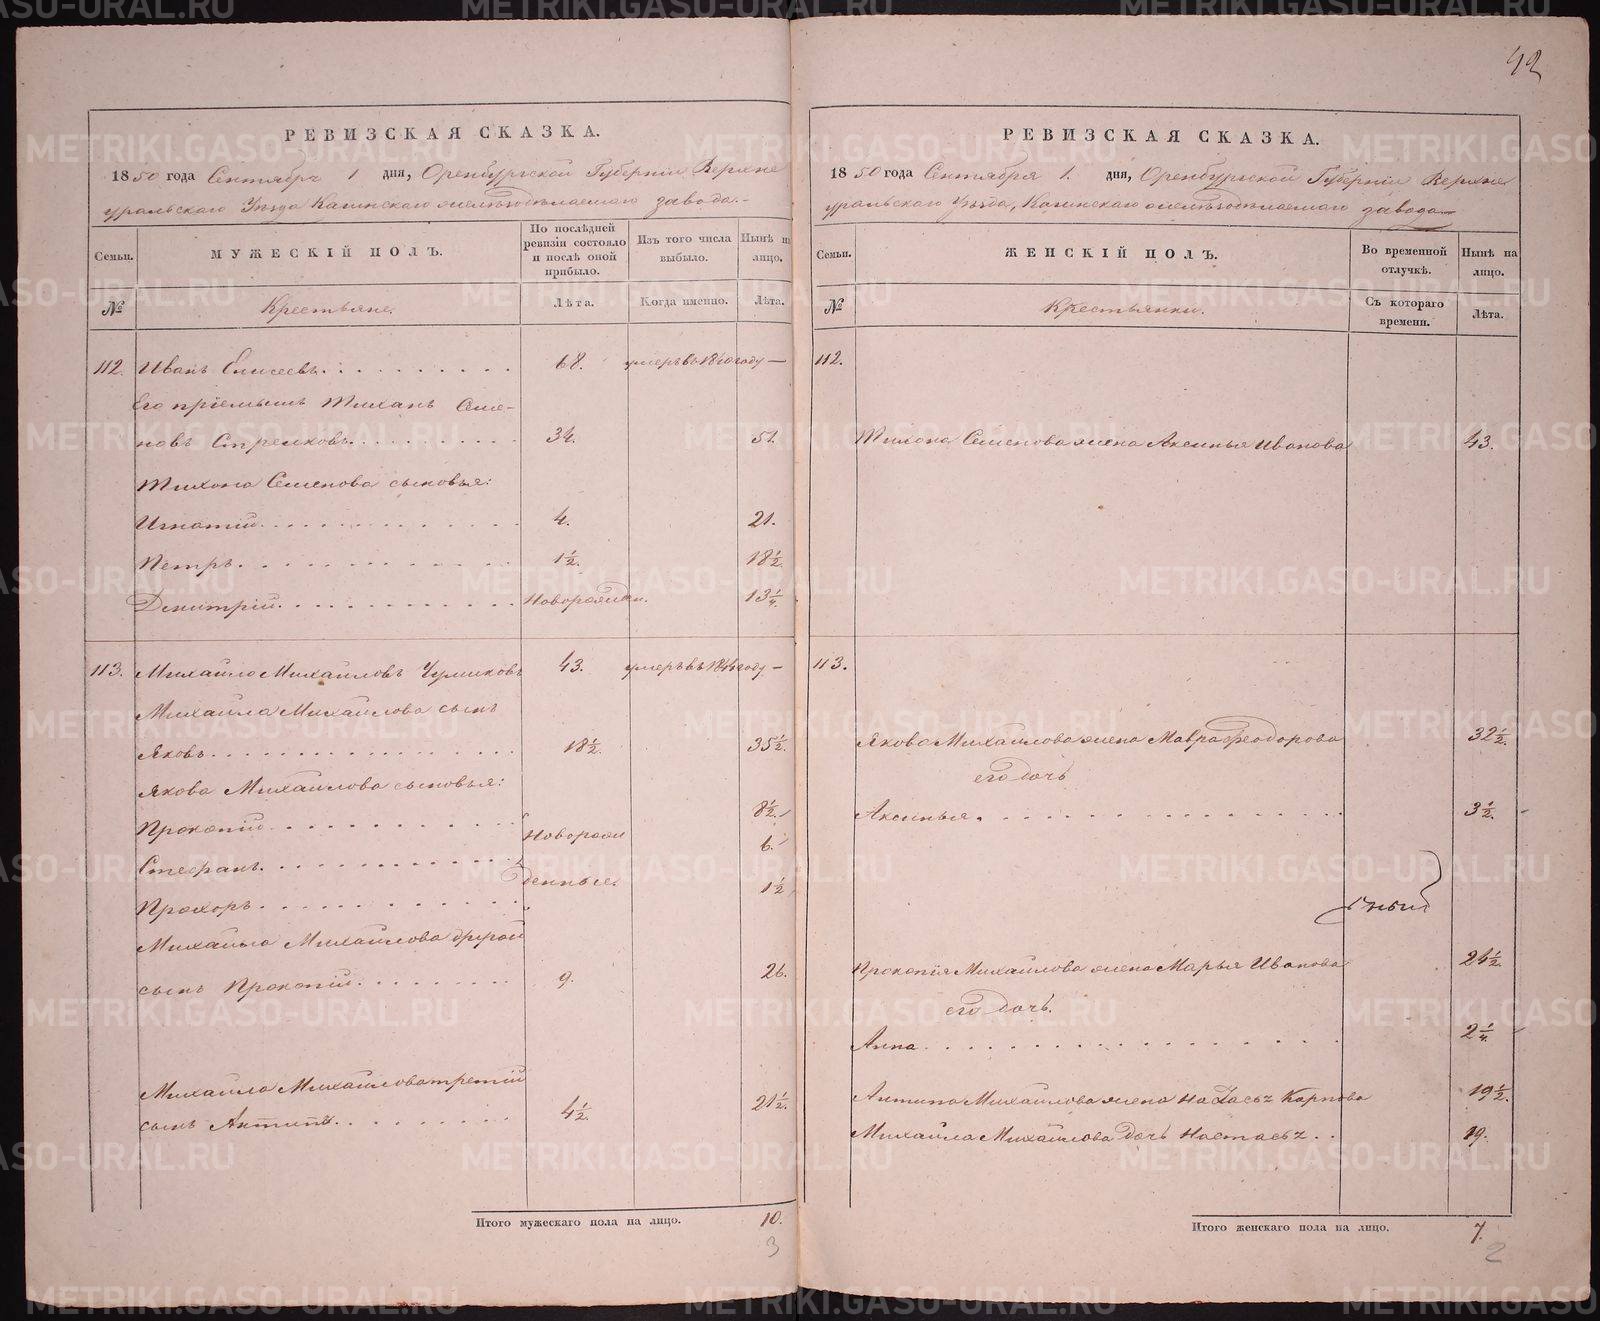 42
РЕВИЗСКАЯ СКАЗКА.
1850 года Сентября 1 дня, Оренбургской Губернiи Верхне
уральскаго Уѣзда Кагинскаго желѣзодѣлаемаго завода.
Семьи.
МУЖЕСКІЙ ПОЛЪ.
По послѣдней ревизіи состояло и послѣ оной прибыло.
Изъ того числа выбыло.
Нынѣ на лицо.
№
Крестьяне.
Лѣта.
Когда именно.
Лѣта.
112. Иванъ Елисеевъ. 68. умеръ въ 1840 году —
Его пріемышъ Тиханъ Семе-
новъ Стрелковъ. 34. 51.
Тихона Семенова сыновья:
Игнатій. 4. 21.
Петръ. 1½. 18½.
Димитрій. Новорожден. 13¼.
113. Михайло Михайловъ Чумиковъ 43. умеръ въ 1844 году —
Михайла Михайлова сынъ
Яковъ. 18½. 35½.
Якова Михайлова сыновья:
Прокопій. Новорож 8½.
Стефанъ. 6.
Прохоръ. денные. 1½
Михайла Михайлова другой
сынъ Прокопій. 9. 26.
Михайла Михайлова третій
сынъ Антипъ. 4½. 21½.
Итого мужескаго пола на лицо. 10.
3
РЕВИЗСКАЯ СКАЗКА.
1850 года Сентября 1. дня, Оренбургской Губерніи Верхне
уральскаго Уѣзда, Кагинскаго желѣзодѣлаемаго завода
Семьи.
ЖЕНСКІЙ ПОЛЪ.
Во временной отлучкѣ.
Нынѣ на лицо.
№
Крестьянки.
Съ котораго времени.
Лѣта.
112.
Тихона Семенова жена Аксинья Иванова 43.
113.
Якова Михайлова жена Мавра Феодорова 32½.
его дочь
Аксинья. 3½.
Прокопія Михайлова жена Марья Иванова 24½.
его дочь.
Анна. 2¼.
Антипа Михайлова жена Настасья Карпова 19½.
Михайла Михайлова дочь Настасья 19.
Итого женскаго пола на лицо. 7.
2
METRIKI.GASO-URAL.RU